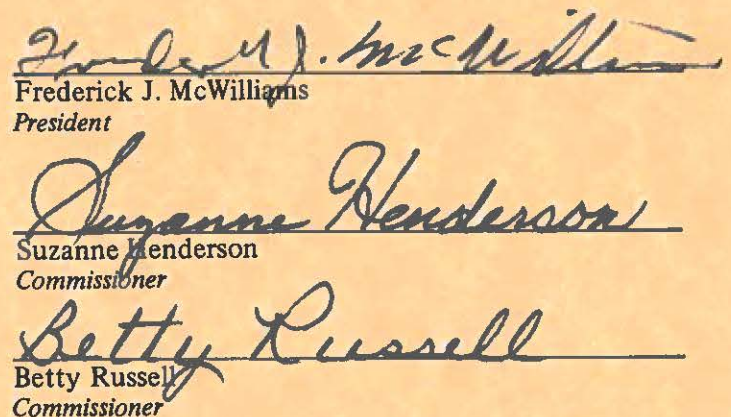 Frederick J. McWilliams
Frederick J. McWilliams
President
Suzanne Henderson
Suzanne Henderson
Commissioner
Betty Russell
Betty Russell
Commissioner